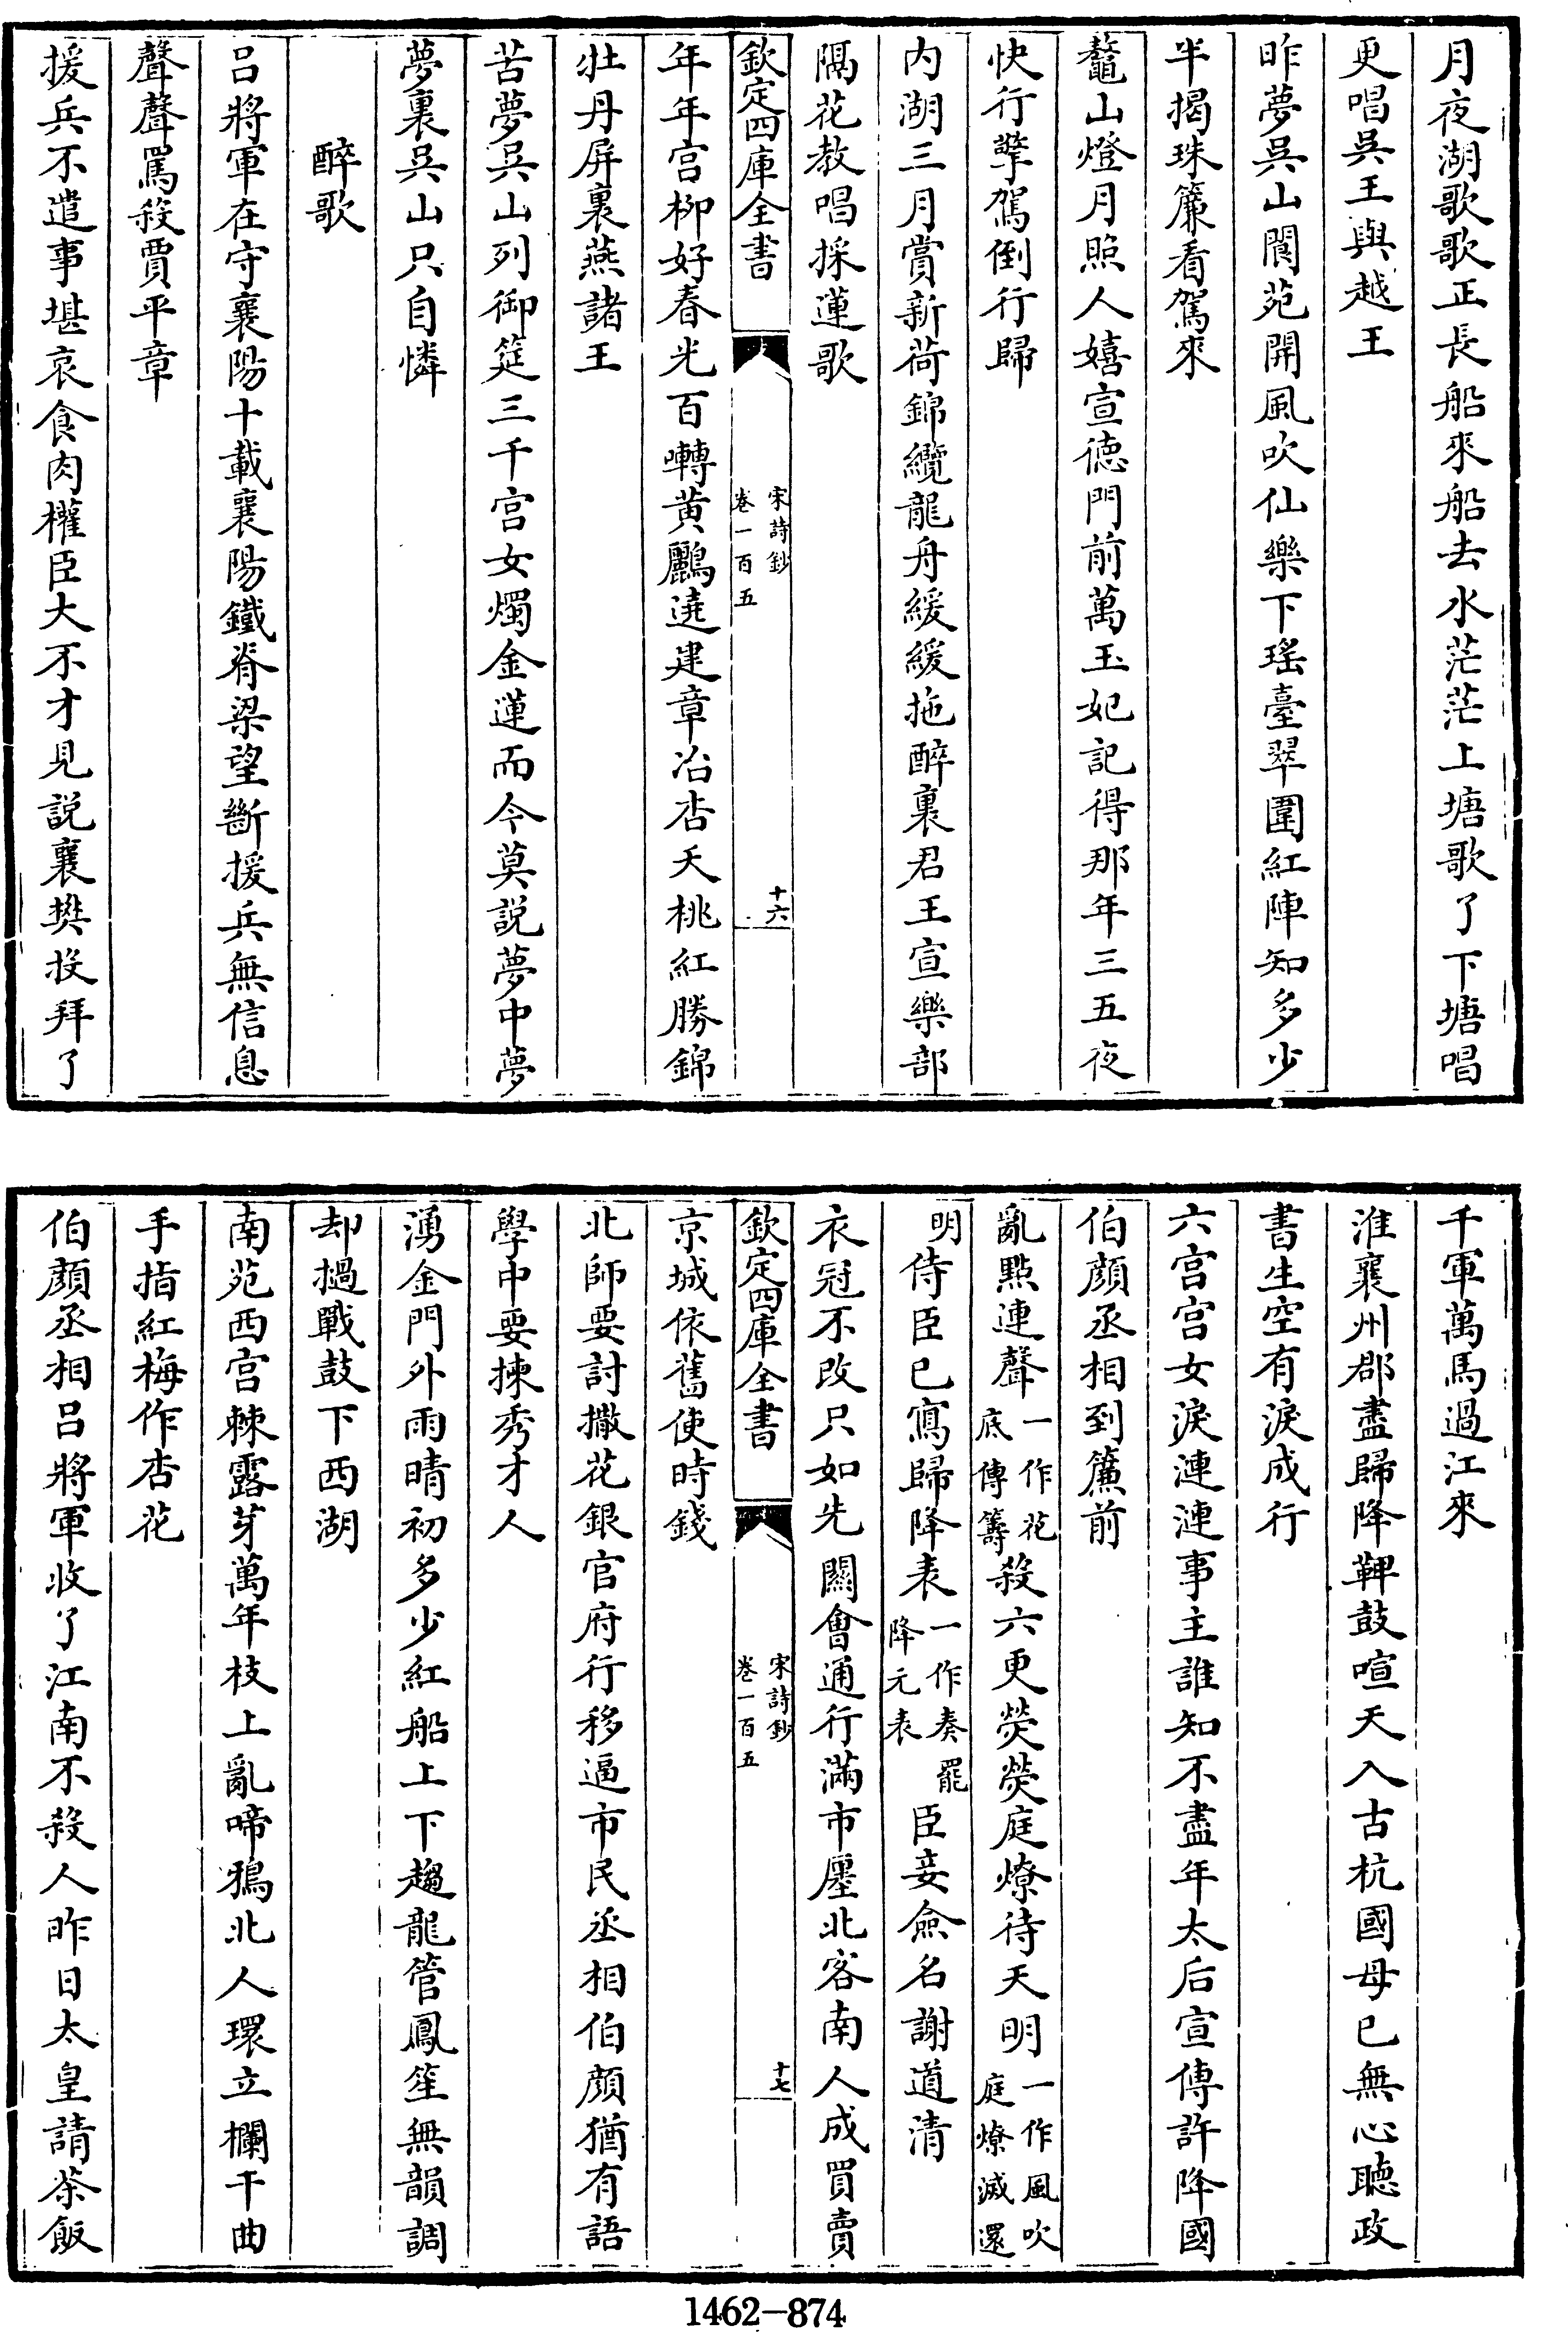 月夜湖歌歌正長船來船去水茫茫上塘歌了下塘唱
更唱吳王與越王
昨夢吳山閬苑開風吹仙樂下瑤臺翠圍紅陣知多少
半揭珠簾看駕來
鼇山燈月照人嬉宣德門前萬玉妃記得那年三五夜
快行擎駕倒行歸
内湖三月賞新荷錦纜龍舟緩緩拖醉裏君王宣樂部
隔花教唱採蓮歌
欽定四庫全書
宋詩鈔
卷一百五
十六
年年宫柳好春光百囀黄鸝遶建章冶杏夭桃紅勝錦
牡丹屏裏燕諸王
苦夢吳山列御筵三千宫女燭金蓮而今莫説夢中夢
夢裏吳山只自憐
醉歌
吕將軍在守襄陽十載襄陽鐵脊梁望斷援兵無信息
聲聲罵殺賈平章
援兵不遣事堪哀食肉權臣大不才見説襄樊投拜了
千軍萬馬過江來
淮襄州郡盡歸降鞞鼓喧天入古杭國母已無心聽政
書生空有淚成行
六宫宫女淚漣漣事主誰知不盡年太后宣傳許降國
伯顔丞相到簾前
亂點連聲一作花底傳籌殺六更熒熒庭燎待天明一作風吹庭燎滅還
明侍臣已寫歸降表一作奏罷降元表臣妾僉名謝道清
衣冠不改只如先關會通行滿市廛北客南人成買賣
欽定四庫全書
宋詩鈔
卷一百五
十七
京城依舊使時錢
北師要討撒花銀官府行移逼市民丞相伯顔猶有語
學中要揀秀才人
湧金門外雨晴初多少紅船上下趨龍管鳳笙無韻調
却撾戰鼓下西湖
南苑西宫棘露芽萬年枝上亂啼鴉北人環立欄干曲
手指紅梅作杏花
伯顔丞相吕將軍收了江南不殺人昨日太皇請茶飯
1462-874